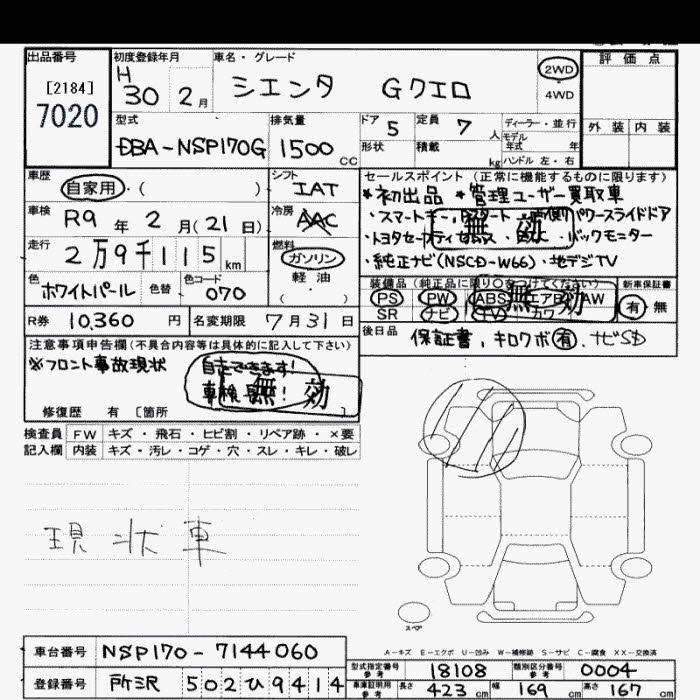 出品番号
[2184]
7020
初度登録年月
H
30 2月
車名・グレード
シエンタ Gクエロ
2WD
・
4WD
評価点
外装 内装
型式
DBA-NSP170G
排気量
1500 cc
ドア 5
形状
定員 7 人
積載 kg
ディーラー・並行
モデル
年式 年
ハンドル 左・右
車歴
自家用・( )
シフト
IAT
車検
R9年2月(21日)
冷房
AAC
走行
2万9千115km
燃料
ガソリン
軽油
( )
色
ホワイトパール
色替
色コード
070
R券 10,360円
名変期限 7月31日
セールスポイント(正常に機能するものに限ります)
*初出品 *管理ユーザー買取車
・スマートキー,Pスタート ・両側パワースライドドア
・トヨタセーフティセンス ・バックモニター
・純正ナビ(NSCD-W66)・地デジTV
無効
装備品(純正品に限り○をつけてください)
PS PW ABS エアB AW
SR ナビ TV カワ
無効
新車保証書
有 無
後日品
保証書,キロクボ有,ナビSD
注意事項申告欄(不具合内容等は具体的に記入して下さい)
※フロント事故現状
自走できます!
車検
無効
修復歴 有 [箇所 ]
検査員 FW キズ・飛石・ヒビ割・リペア跡・×要
記入欄 内装 キズ・汚レ・コゲ・穴・スレ・キレ・破レ
現状車
スペア
A-キズ E-エクボ U-凹み W-補修跡 S-サビ C-腐食 XX-交換済
車台番号 NSP170-7144060
登録番号 所沢 502 ひ 9414
型式指定番号
参考
18108
類別区分番号
参考
0004
車車証明用
参考
長さ 423 cm 幅 169 cm 高さ 167 cm